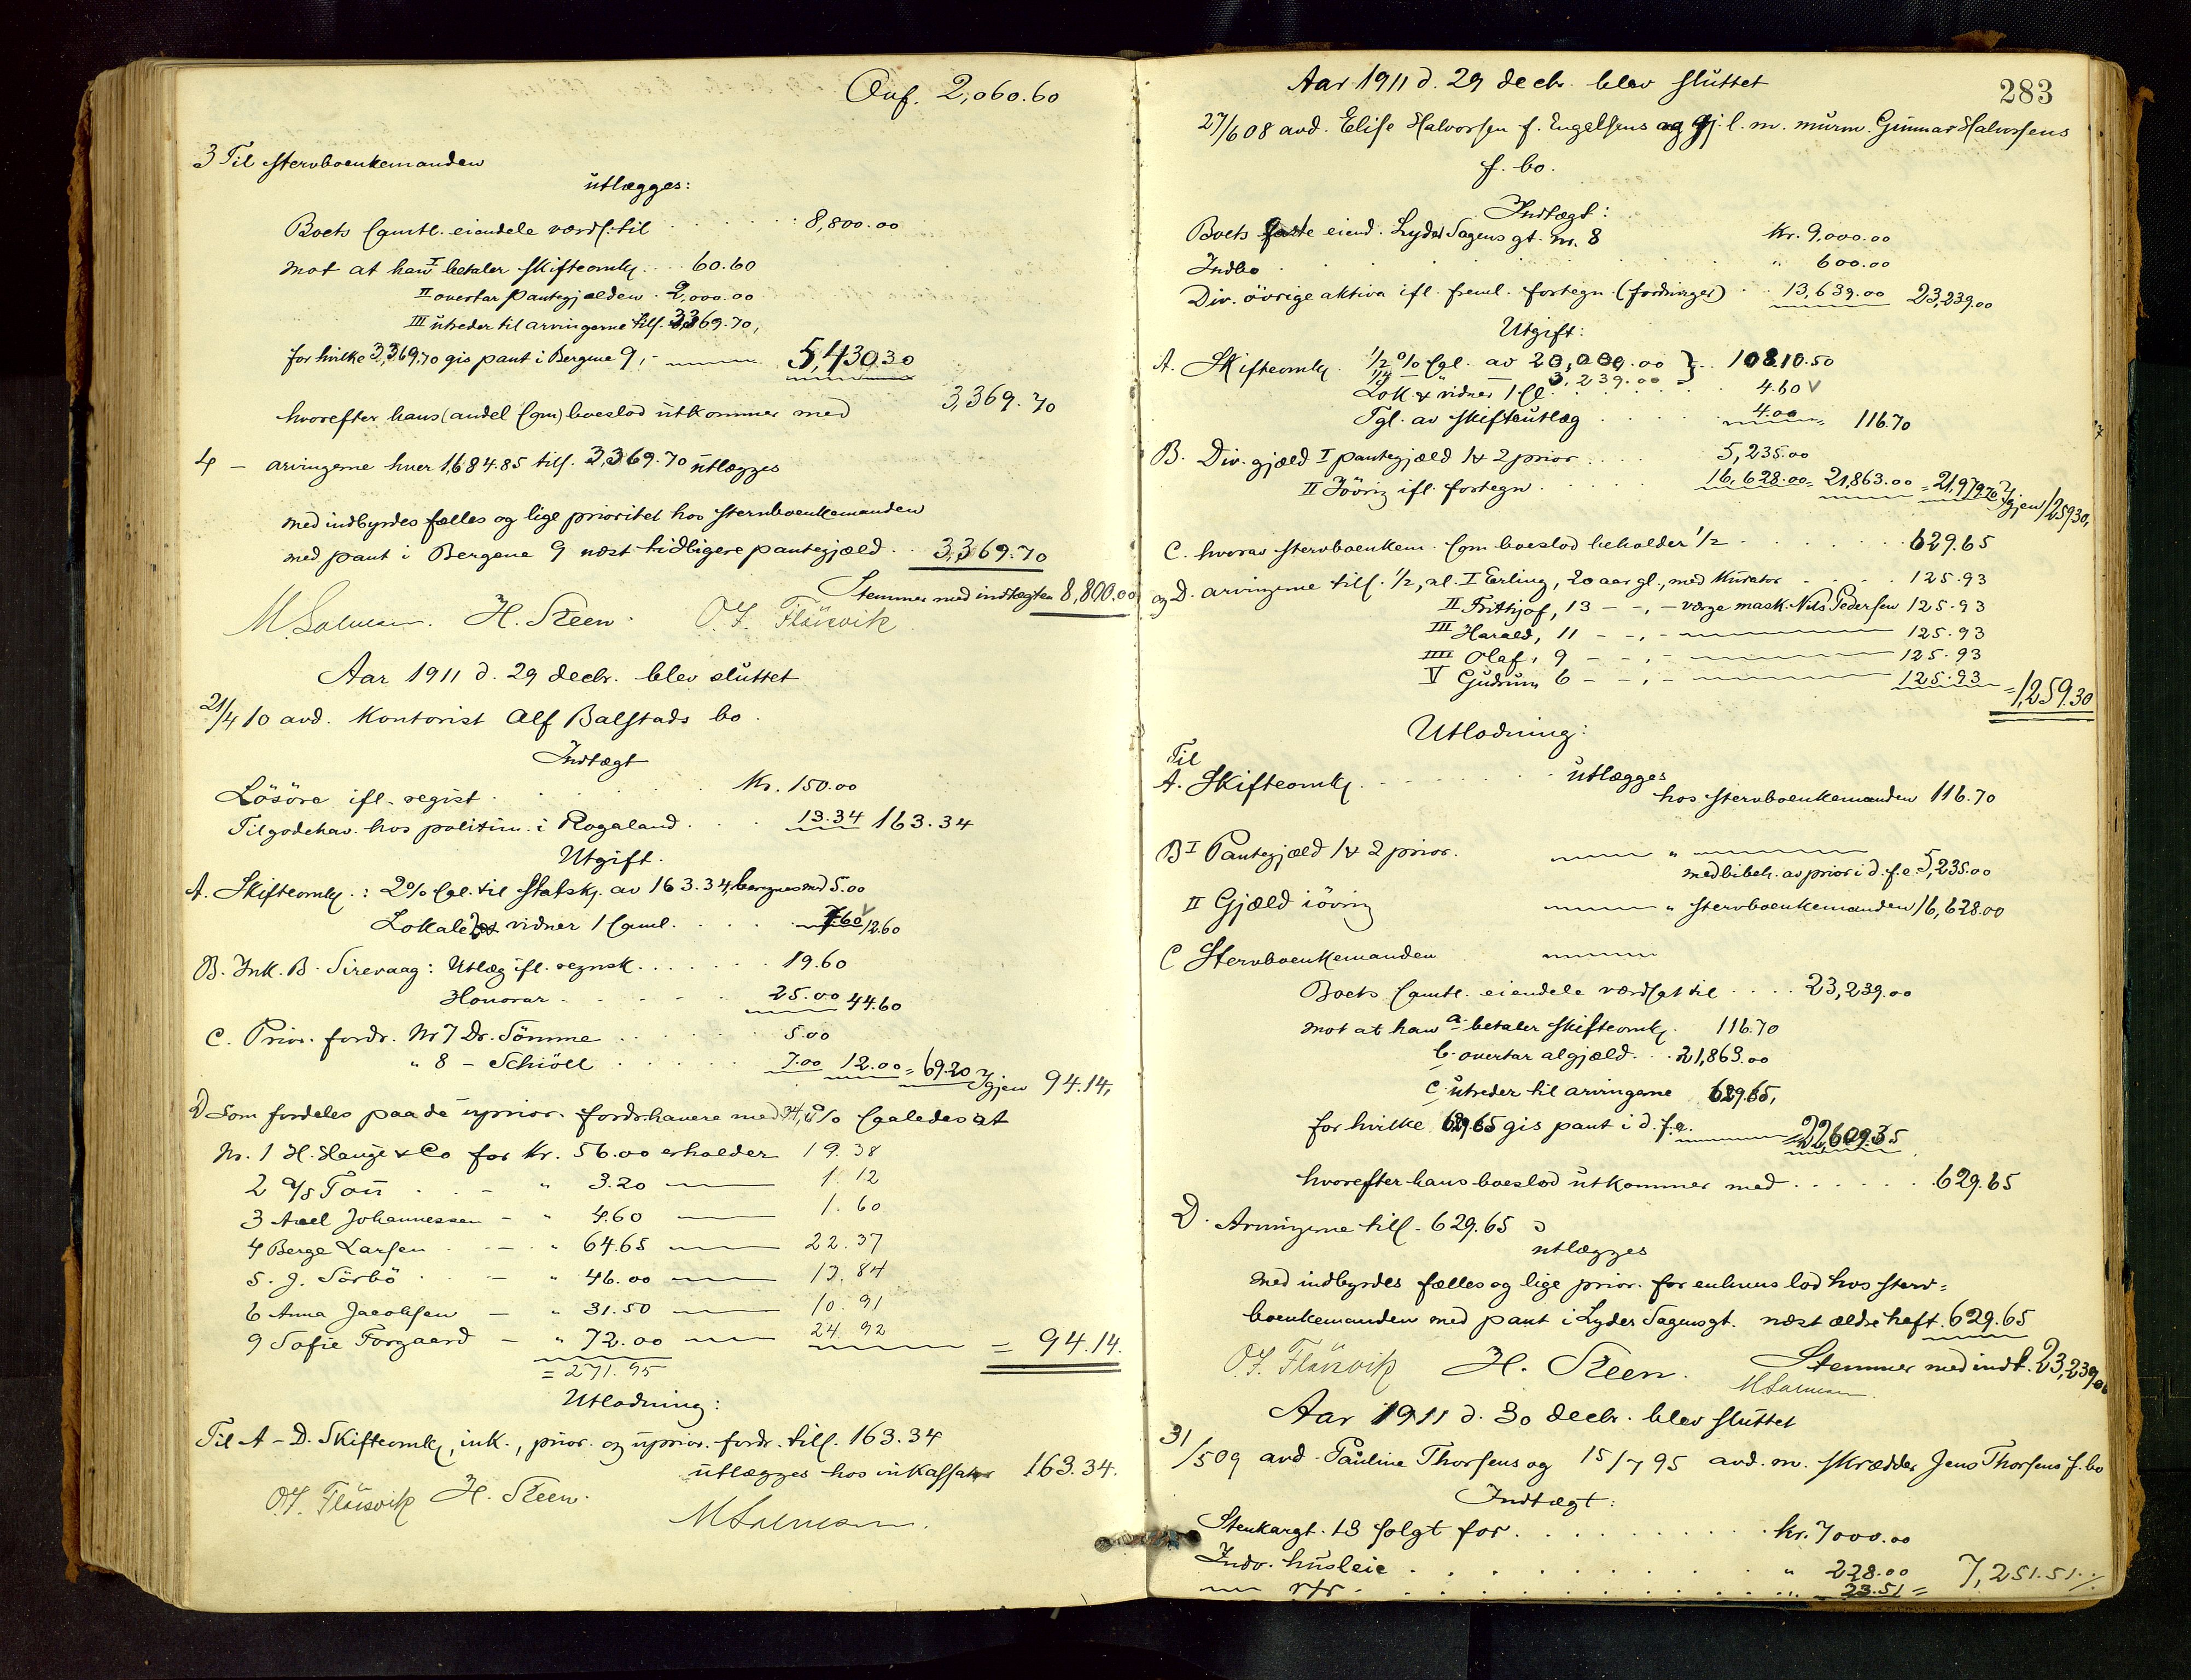 Ovf. 2,060.60
3 Til stervboenkemanden
utlægges:
Boets samtl. eiendele værds. til 8,800.00
mot at han I betaler skifteomk. 60.60
II overtar pantegjælden 2,000.00
III utreder til arvingerne tils. 3369.70,
for hvilke 3,369.70 gis pant i Bergene 9, - 5,430.30
hvorefter hans (andel som) boeslod utkommer med 3,369.70
4 - arvingerne hver 1,684.85 tils. 3,369.70 utlægges
med indbyrdes fælles og lige prioritet hos stervboenkemanden
med pant i Bergene 9 næst tidligere pantegjæld 3,369.70
Stemmer med indtægten 8,800.00
H. Steen.
Aar 1911 d. 29 decbr. blev sluttet
21/4 10 avd. Kontorist Alf Balstads bo.
Indtægt
Lösöre ifl. regist. Kr. 150.00
Tilgodehav. hos politim. i Rogaland 13.34 163.34
Utgift.
A. Skifteomk.: 2% sgl. til statsk. av 163.34, beregnes med 5.00
Lokale vidner 1 saml. 7.60 12.60
B. Ink. B. Sirevaag: Utlæg ifl. regnsk. 19.60
Honorar 25.00 44.60
C. Prior. fordr. Nr 7 Dr. Sömme 5.00
" 8 - Schiöll 7.00 12.00 = 69.20 Igjen 94.14,
D Som fordeles paa de uprior. fordr.havere med 34,6% saaledes at
Nr. 1 H. Hauge & Co for Kr. 56.00 erholder 19.38
2 A/S Tou - " 3.20 — 1.12
3 Axel Johannessen - " 4.60 — 1.60
4 Berge Larsen - " 64.65 — 22.37
5. J. Sörbö - " 46.00 — 13.84
6 Anna Jacobsen - " 31.50 — 10.91
9 Sofie Torgaard - " 72.00 — 24.92 = 94.14.
= 271.95
Utlodning:
Til A - D. Skifteomk, ink., prior. og uprior. fordr. tils. 163.34
utlægges hos inkassator 163.34.
H. Steen.
283
Aar 1911 d. 29 decbr. blev sluttet
27/6 08 avd. Elise Halvorsen f. Engelsens og gj. l. m. murm. Gunnar Halvorsens
f. bo.
Indtægt:
Boets faste eiend. Lyder Sagens gt. nr. 8 Kr. 9,000.00
Indbo " 600.00
Div. övrige aktiva ifl. freml. fortegn. (fordringer) 13,639.00 23,239.00
Utgift:
A. Skifteomk. 1/2% sgl. av 20,000.00 } 10810.50
1/4 - " 3,239.00
Lok. & vidner 1 sl. 4.60
Tgl. av skifteutlæg 4.00 = 116.70
B. Div. gjæld I pantegjæld 1 & 2 prior 5,235.00
II Iövrig ifl. fortegn 16,628.00 = 21,863.00 = 21,979.70 Igjen 1,259.30,
C. hvorav stervboenkem. som boeslod beholder 1/2 629.65
og D. arvingerne tils. 1/2, al. I Erling, 20 aar gl., med Kurator 125.93
II Frithjof, 13 - - , - værge mask. Nils Pedersen 125.93
III Harald, 11 - - , - — 125.93
IIII Olaf, 9 - - , - — 125.93
V Gudrum 6 - - , - — 125.93 = 1,259.30
Utlodning:
Til
A. Skifteomk. utlægges
hos stervboenkemanden 116.70
B I Pantegjæld 1 & 2 prior. — " —
med bibeh. av prior i d. f. e. 5,235.00
II Gjæld iövrig — " stervboenkemanden 16,628.00
C Stervboenkemanden —
Boets samtl. eiendele værdsat til 23,239.00
mot at han a. betaler skifteomk. 116.70
b. overtar al gjæld 21,863.00
c. utreder til arvingerne 629.65,
for hvilke 629.65 gis pant i d. f. e. — = 22,609.35
hvorefter hans boeslod utkommer med 629.65
D. Arvingerne tils. 629.65
utlægges
med indbyrdes fælles og lige prior. for enhvers lod hos sterv=
boenkemanden med pant i Lyder Sagensgt. næst ældre heft. 629.65
H. Steen. Stemmer med indt. 23,239.00
Aar 1911 d. 30 decbr. blev sluttet
31/5 09 avd. Pauline Thorsens og 15/7 95 avd. m. skrædder Jens Thorsens f. bo
Indtægt:
Stenkargt. 18 solgt for Kr. 7000.00
Indv. husleie " 228.00 7,251.51 ./.
— rtr. " 23.51 =